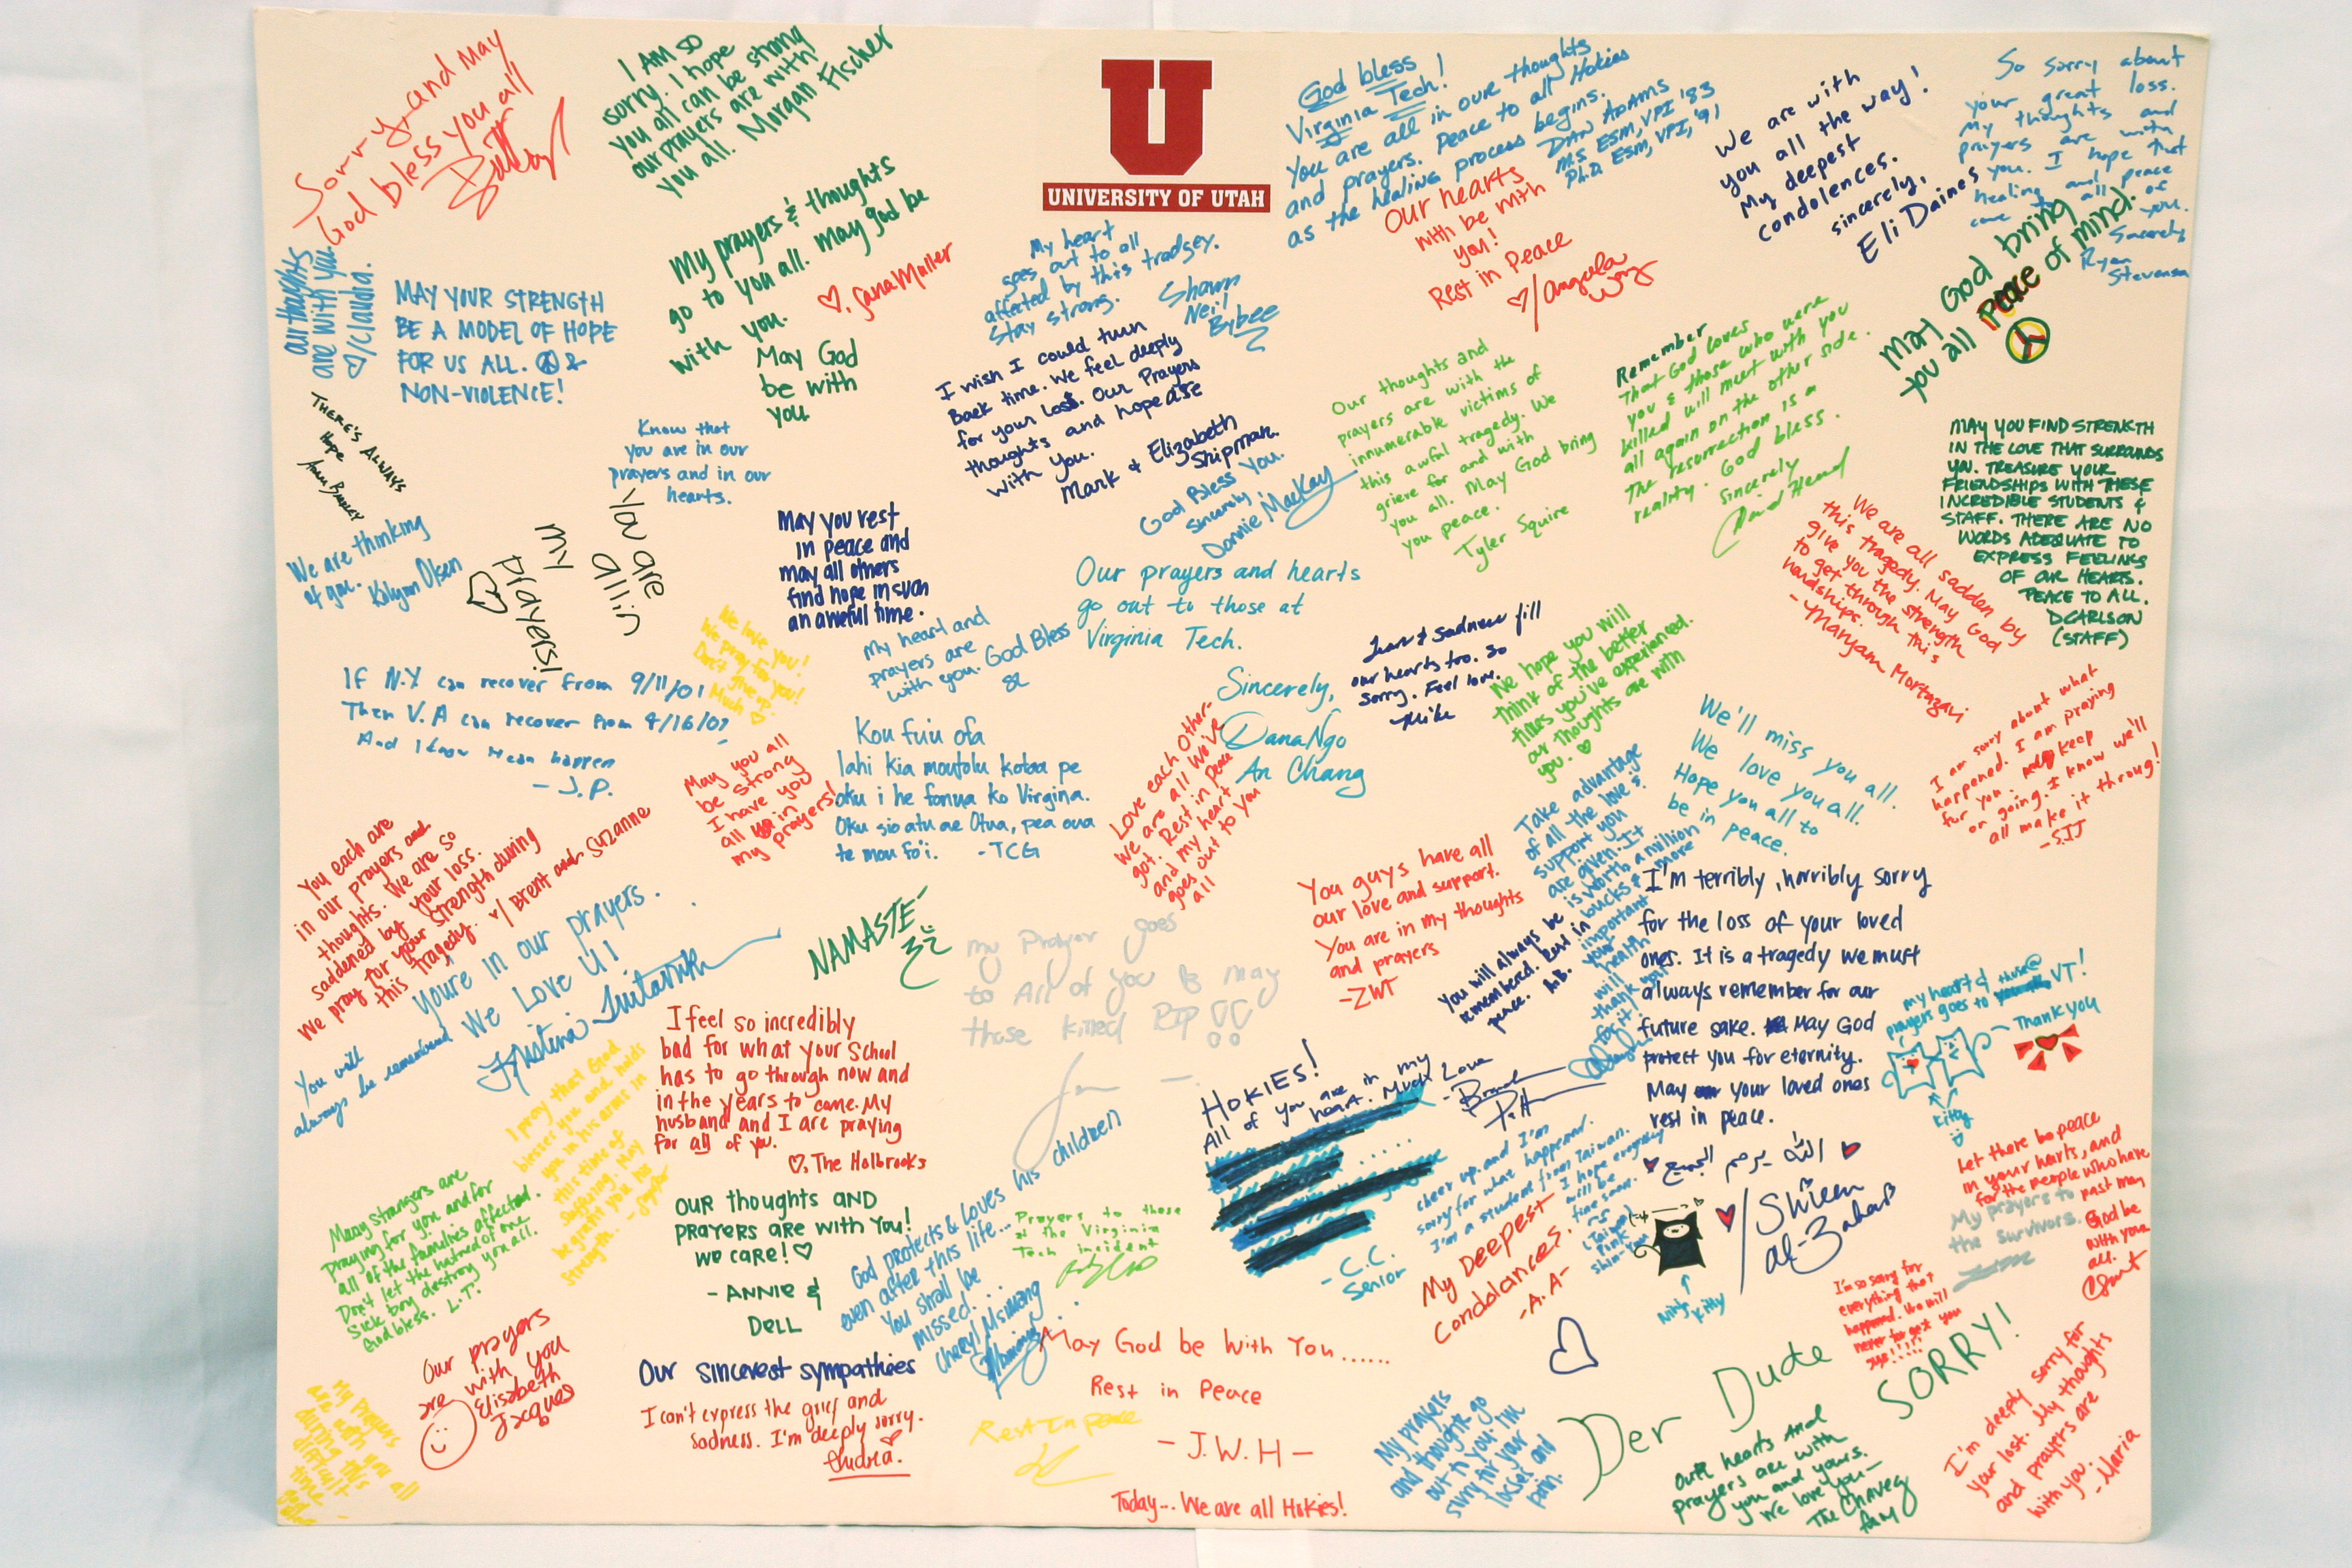 Sorry, and May
God bless you all
I AM SO
sorry. I hope
you all can be strong
our prayers are with
you all. Morgan Fischer
U
UNIVERSITY OF UTAH
God bless
Virginia Tech!
You are all in our thoughts
and prayers. Peace to all Hokies
as the healing process begins.
DAN ADAMS
MS ESM, VPI '83
Ph.D ESM, VPI, '91
We are with
you all the way!
My deepest
condolences.
sincerely,
Eli Daines
So sorry about
your great loss.
My thoughts and
prayers are with
you. I hope that
healing and peace
come to all of
you.
Sincerely
Ryan
Stevenson
our thoughts
are with you
♡/Claudia.
MAY YOUR STRENGTH
BE A MODEL OF HOPE
FOR US ALL. ☮ &
NON-VIOLENCE!
My prayers & thoughts
go to you all. May god be
with you.
♡. Sana Muller
My heart
goes out to all
affected by this tradgey.
Stay strong.
Shawn
Neil
Bybee
Our hearts
with be with
you!
Rest in Peace
♡/Angela
May God bring
you all Peace of mind.
May God
be with
you
THERE'S ALWAYS
Hope
Know that
you are in our
prayers and in our
hearts.
I wish I could turn
Back time. We feel deeply
for your loss. Our Prayers
thoughts and hope are
with you.
Mark & Elizabeth
Shipman.
God Bless You.
Sincerely
Donnie MacKay
Our thoughts and
prayers are with the
innumerable victims of
this awful tragedy. We
grieve for and with
you all. May God bring
you peace.
Tyler Squire
Remember
That God loves
you & those who were
killed will meet with you
all again on the other side.
The resurrection is a
reality. God bless.
Sincerely
David Head
MAY YOU FIND STRENGTH
IN THE LOVE THAT SURROUNDS
YOU. TREASURE YOUR
FRIENDSHIPS WITH THESE
INCREDIBLE STUDENTS &
STAFF. THERE ARE NO
WORDS ADEQUATE TO
EXPRESS FEELINGS
OF OUR HEARTS.
PEACE TO ALL.
DCARLSON
(STAFF)
We are thinking
of you.
Olsen
You are
all in
my
prayers!
May you rest
in peace and
may all others
find hope in such
an aweful time.
We love you!
We pray for you!
Don't give up.
Much ♡.
My heart and
prayers are
with you. God Bless
Our prayers and hearts
go out to those at
Virginia Tech.
Sincerely,
Dana Ngo
An Chang
Tears & Sadness fill
our hearts too. So
sorry. Feel love.
Mike
We hope you will
think of the better
times you've experienced.
our thoughts are with
you. ♡
We are all sadden by
this tragedy. May God
give you the strength
to get through this
hardships.
-Maryam Mortazavi
If N.Y can recover from 9/11/01
Then V.A can recover from 4/16/07
And I know it can happen
- J.P.
May you all
be strong
I have you
all in
my prayers!
Kou fuiu ofa
lahi kia moutolu kotoa pe
oku i he fonua ko Virgina.
Oku sio atu ae Otua, pea oua
te mou fo'i. -TCG
Love each other-
we are all we've
got. Rest in peace
and my heart
goes out to you
all
We'll miss you all.
We love you all.
Hope you all to
be in peace.
I am sorry about what
happened. I am praying
fur you. keep
on going. I know we'll
all make it throug!
-SJJ
You each are
in our prayers and
thoughts. We are so
saddened by your loss.
We pray for your strength during
this tragedy. ♥/ Brent and Suzanne
You're in our prayers.
We Love U!
Kristina
You will
always be remembered
NAMASTE-
My Prayer goes
to All of you & may
those killed RIP!!
You guys have all
our love and support.
You are in my thoughts
and prayers
-ZWT
Take advantage
of all the love &
support you
are given. It
is worth a million
bucks & more
important
your
health
will
thank you
for it!
You will always be
remembered. Rest in
peace.
I'm terribly, horribly sorry
for the loss of your loved
ones. It is a tragedy we must
always remember for our
future sake. May God
protect you for eternity.
May your loved ones
rest in peace.
الله يرحم الجميع
♥/Shireen
al-Bahar
Ninja
Kitty
My heart &
prayers goes to those @ VT!
Thank you
kitty
I feel so incredibly
bad for what your School
has to go through now and
in the years to come. My
husband and I are praying
for all of you.
♡, The Holbrooks
I pray that God
blesses you and holds
you in his arms in
this time of
suffering. May
he grant you his
strength.
HOKIES!
All of you are in my
heart. Much Love
- C.C.
Senior
cheer up, and I'm
sorry for what happened.
I'm a student from Taiwan.
I hope everything
will be
fine soon.
Let there be peace
in your hearts, and
for the people who have
past may
God be
with you
all.
My prayers to
the survivors.
Many Strangers are
praying for you and for
all of the families affected.
Don't let the hatred of one
Sick boy destroy you all.
God bless. L.T.
OUR thoughts AND
PRAYERS ARE with You!
we CARE! ♡
- ANNIE &
DELL
God protects & loves his children
even after this life...
You shall be
missed...
Cheryl Msimang
Prayers to those
at the Virginia
Tech incident
My Deepest
Condolances.
-A.A-
I'm so sorry for
everything that
happend. We will
never forget you
Our prayers
are with you
Elisabeth
Jacques
Our sincerest sympathies
I can't express the grief and
sadness. I'm deeply sorry.
Andrea.
May God be With You......
Rest in Peace
- J.W.H -
Rest In peace
Today... We are all Hokies!
My Prayers
are with you all
during this
difficult
time
My prayers
and thoughts go
out to you. I'm
sorry for your
losses and
pain.
Der Dude
SORRY!
Our hearts And
prayers are with
you and yours.
We love you-
The Chavez
fam
I'm deeply sorry for
your lost. My thoughts
and prayers are
with you.
-Maria